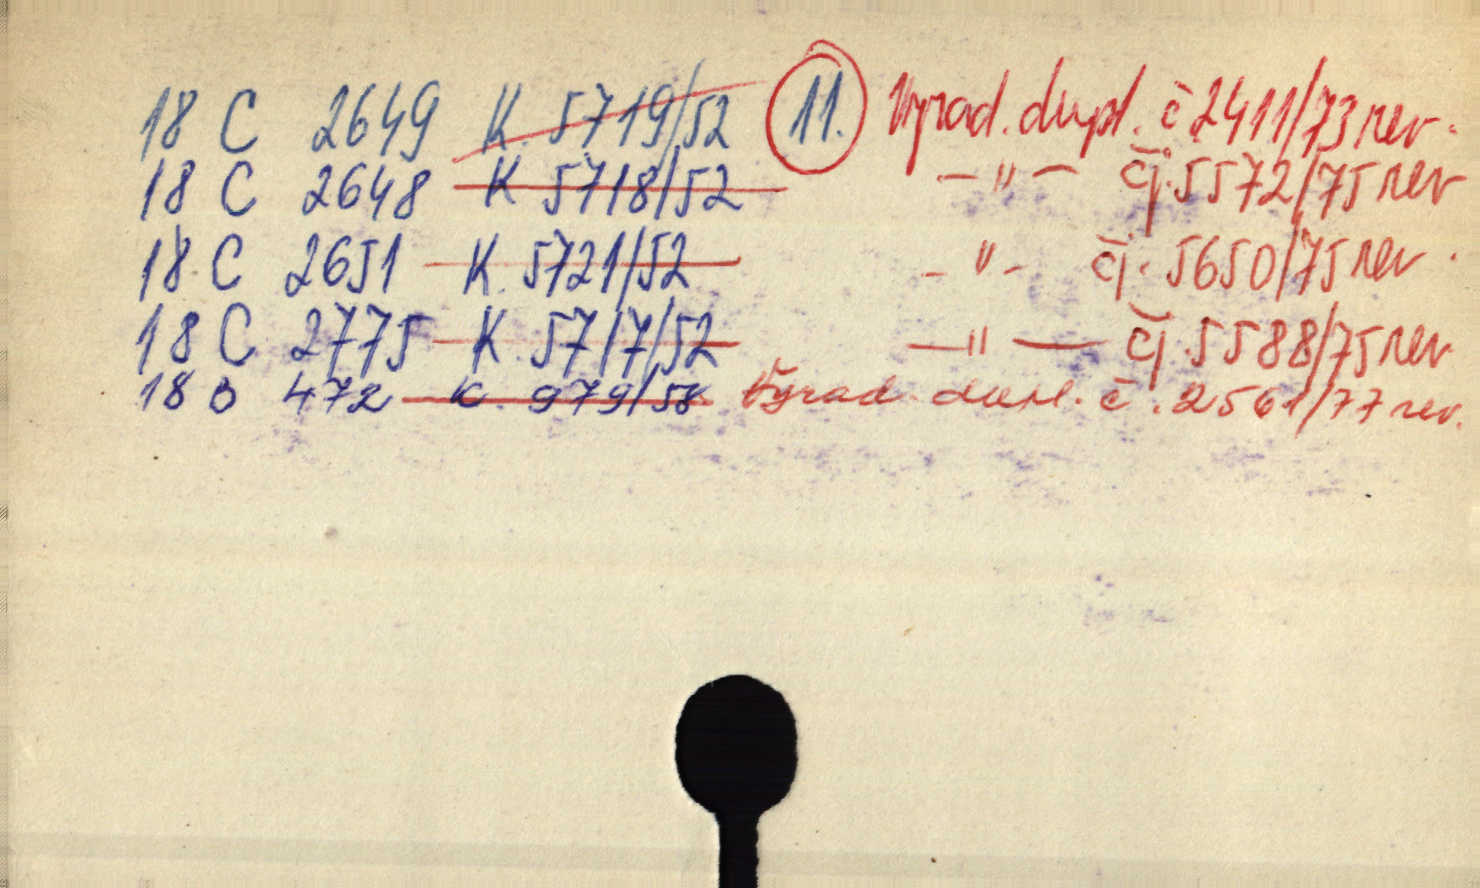 18 C 2649 K. 5719/52 11. Vyřad. dupl. č 2411/73 rev.
18 C 2648 K 5718/52 — " — čj. 5572/75 rev
18 C 2651 K. 5721/52 - " - čj. 5650/75 rev.
18 C 2775 K. 5717/52 — " — čj. 5588/75 rev
18 B 472 K. 979/58 Vyřad. dupl. č. 2561/77 rev.